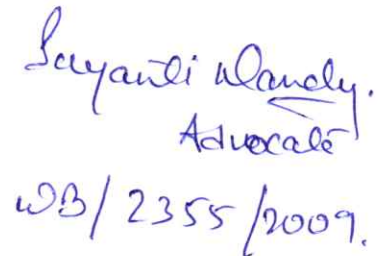 Sayanti Nandy.
Advocate
WB/2355/2009.